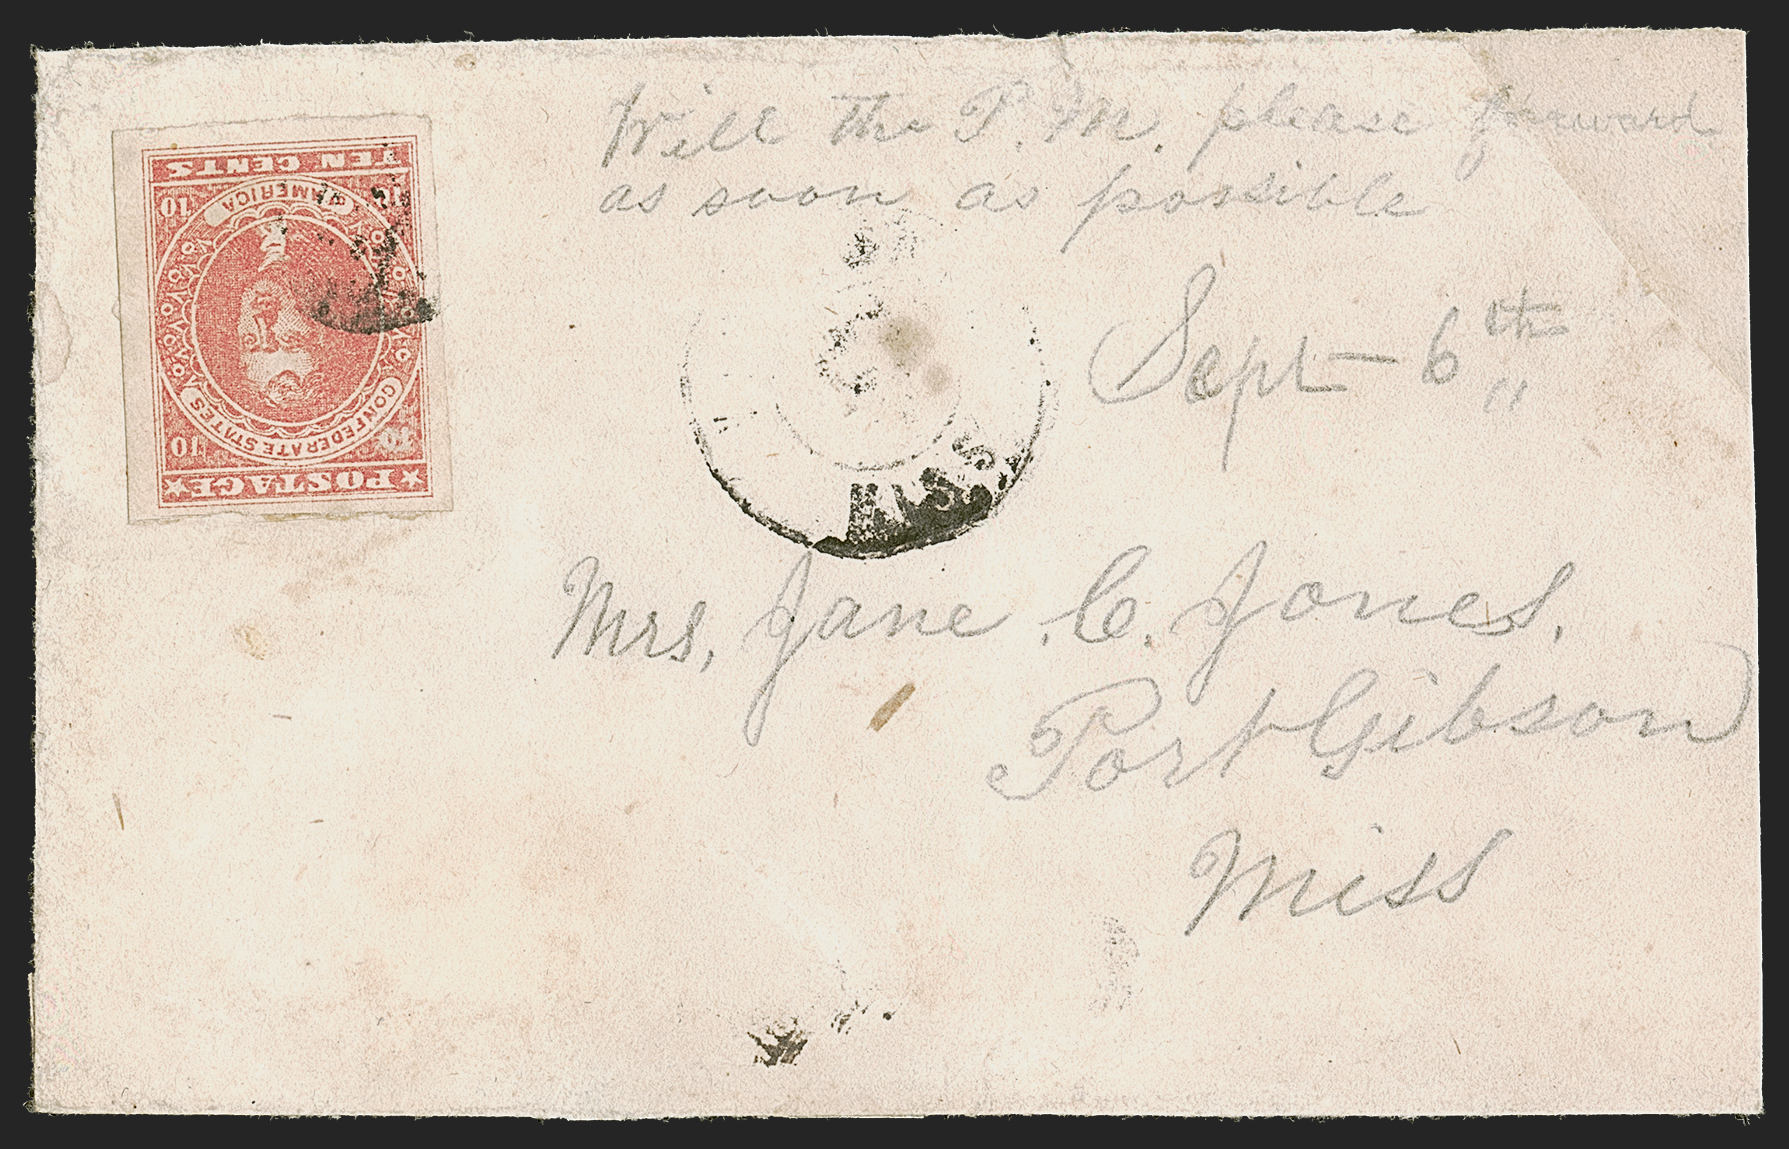 Will the P. M. please forward
as soon as possible
Sept 6th "
Mrs, Jane C. Jones,
Port Gibson
Miss
POSTAGE
10 10
CONFEDERATE STATES
AMERICA
10 10
TEN CENTS
MISS